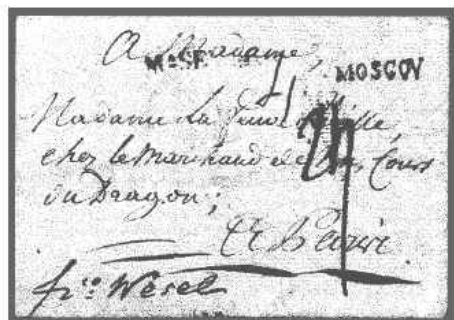 A Madame,
MOSCOV
Madame La
chez le Marchand de Cour
du Dragon;
A Paris
fco Wesel